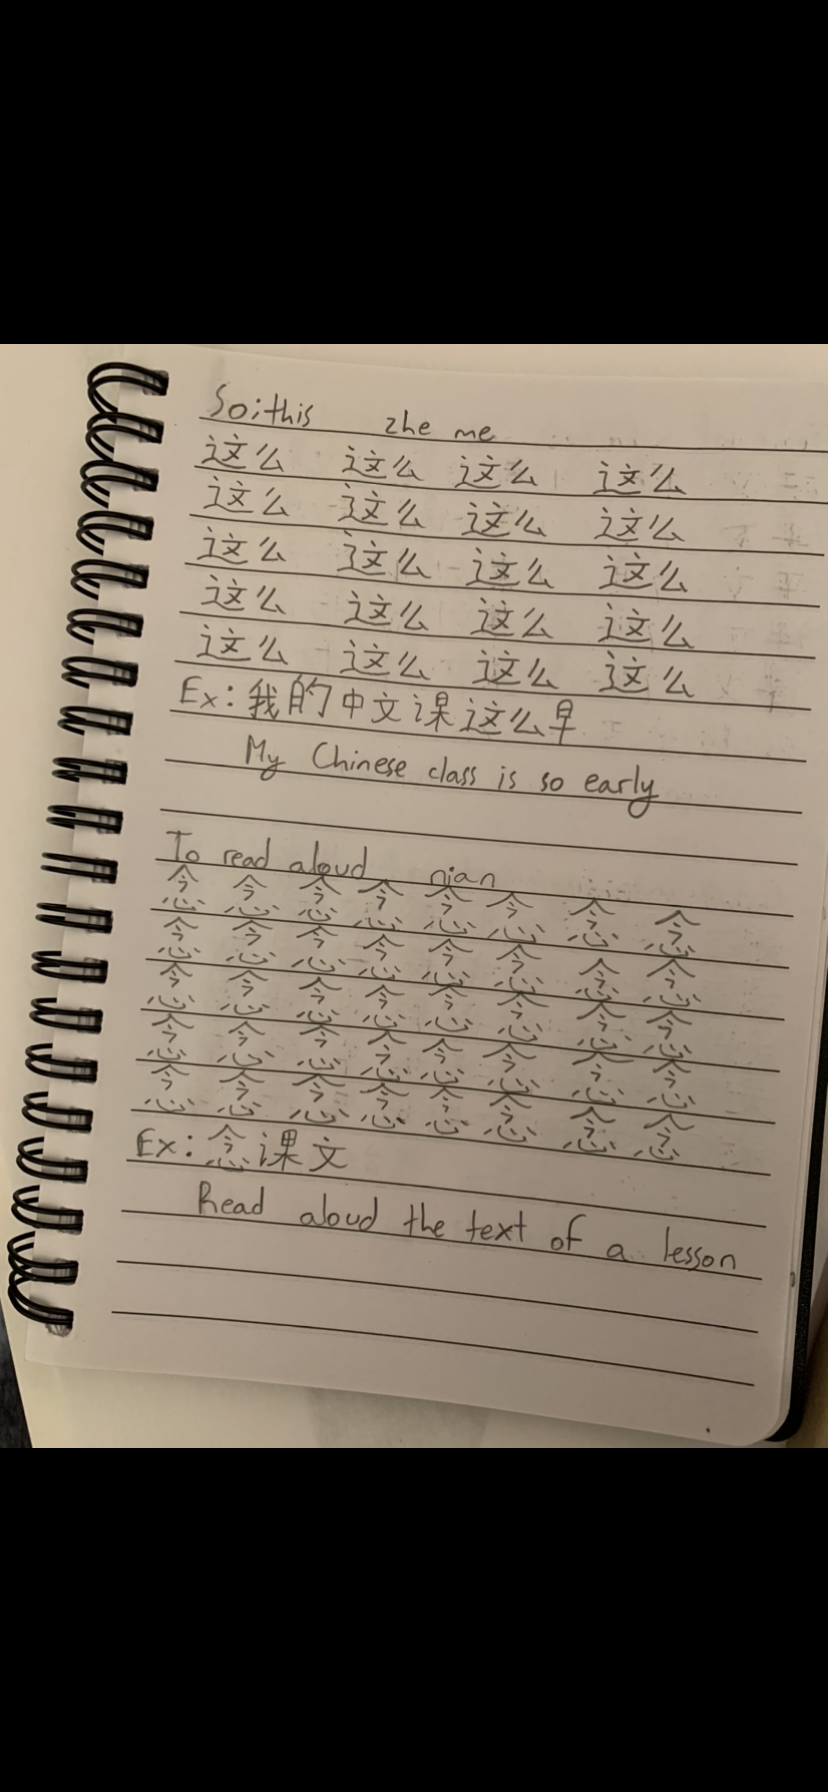 So; this zhe me
这么 这么 这么 这么
这么 这么 这么 这么
这么 这么 这么 这么
这么 这么 这么 这么
这么 这么 这么 这么
Ex: 我的中文课这么早
My Chinese class is so early
To read aloud nian
念 念 念 念 念 念 念 念
念 念 念 念 念 念 念 念
念 念 念 念 念 念 念 念
念 念 念 念 念 念 念 念
念 念 念 念 念 念 念 念
Ex: 念课文
Read aloud the text of a lesson